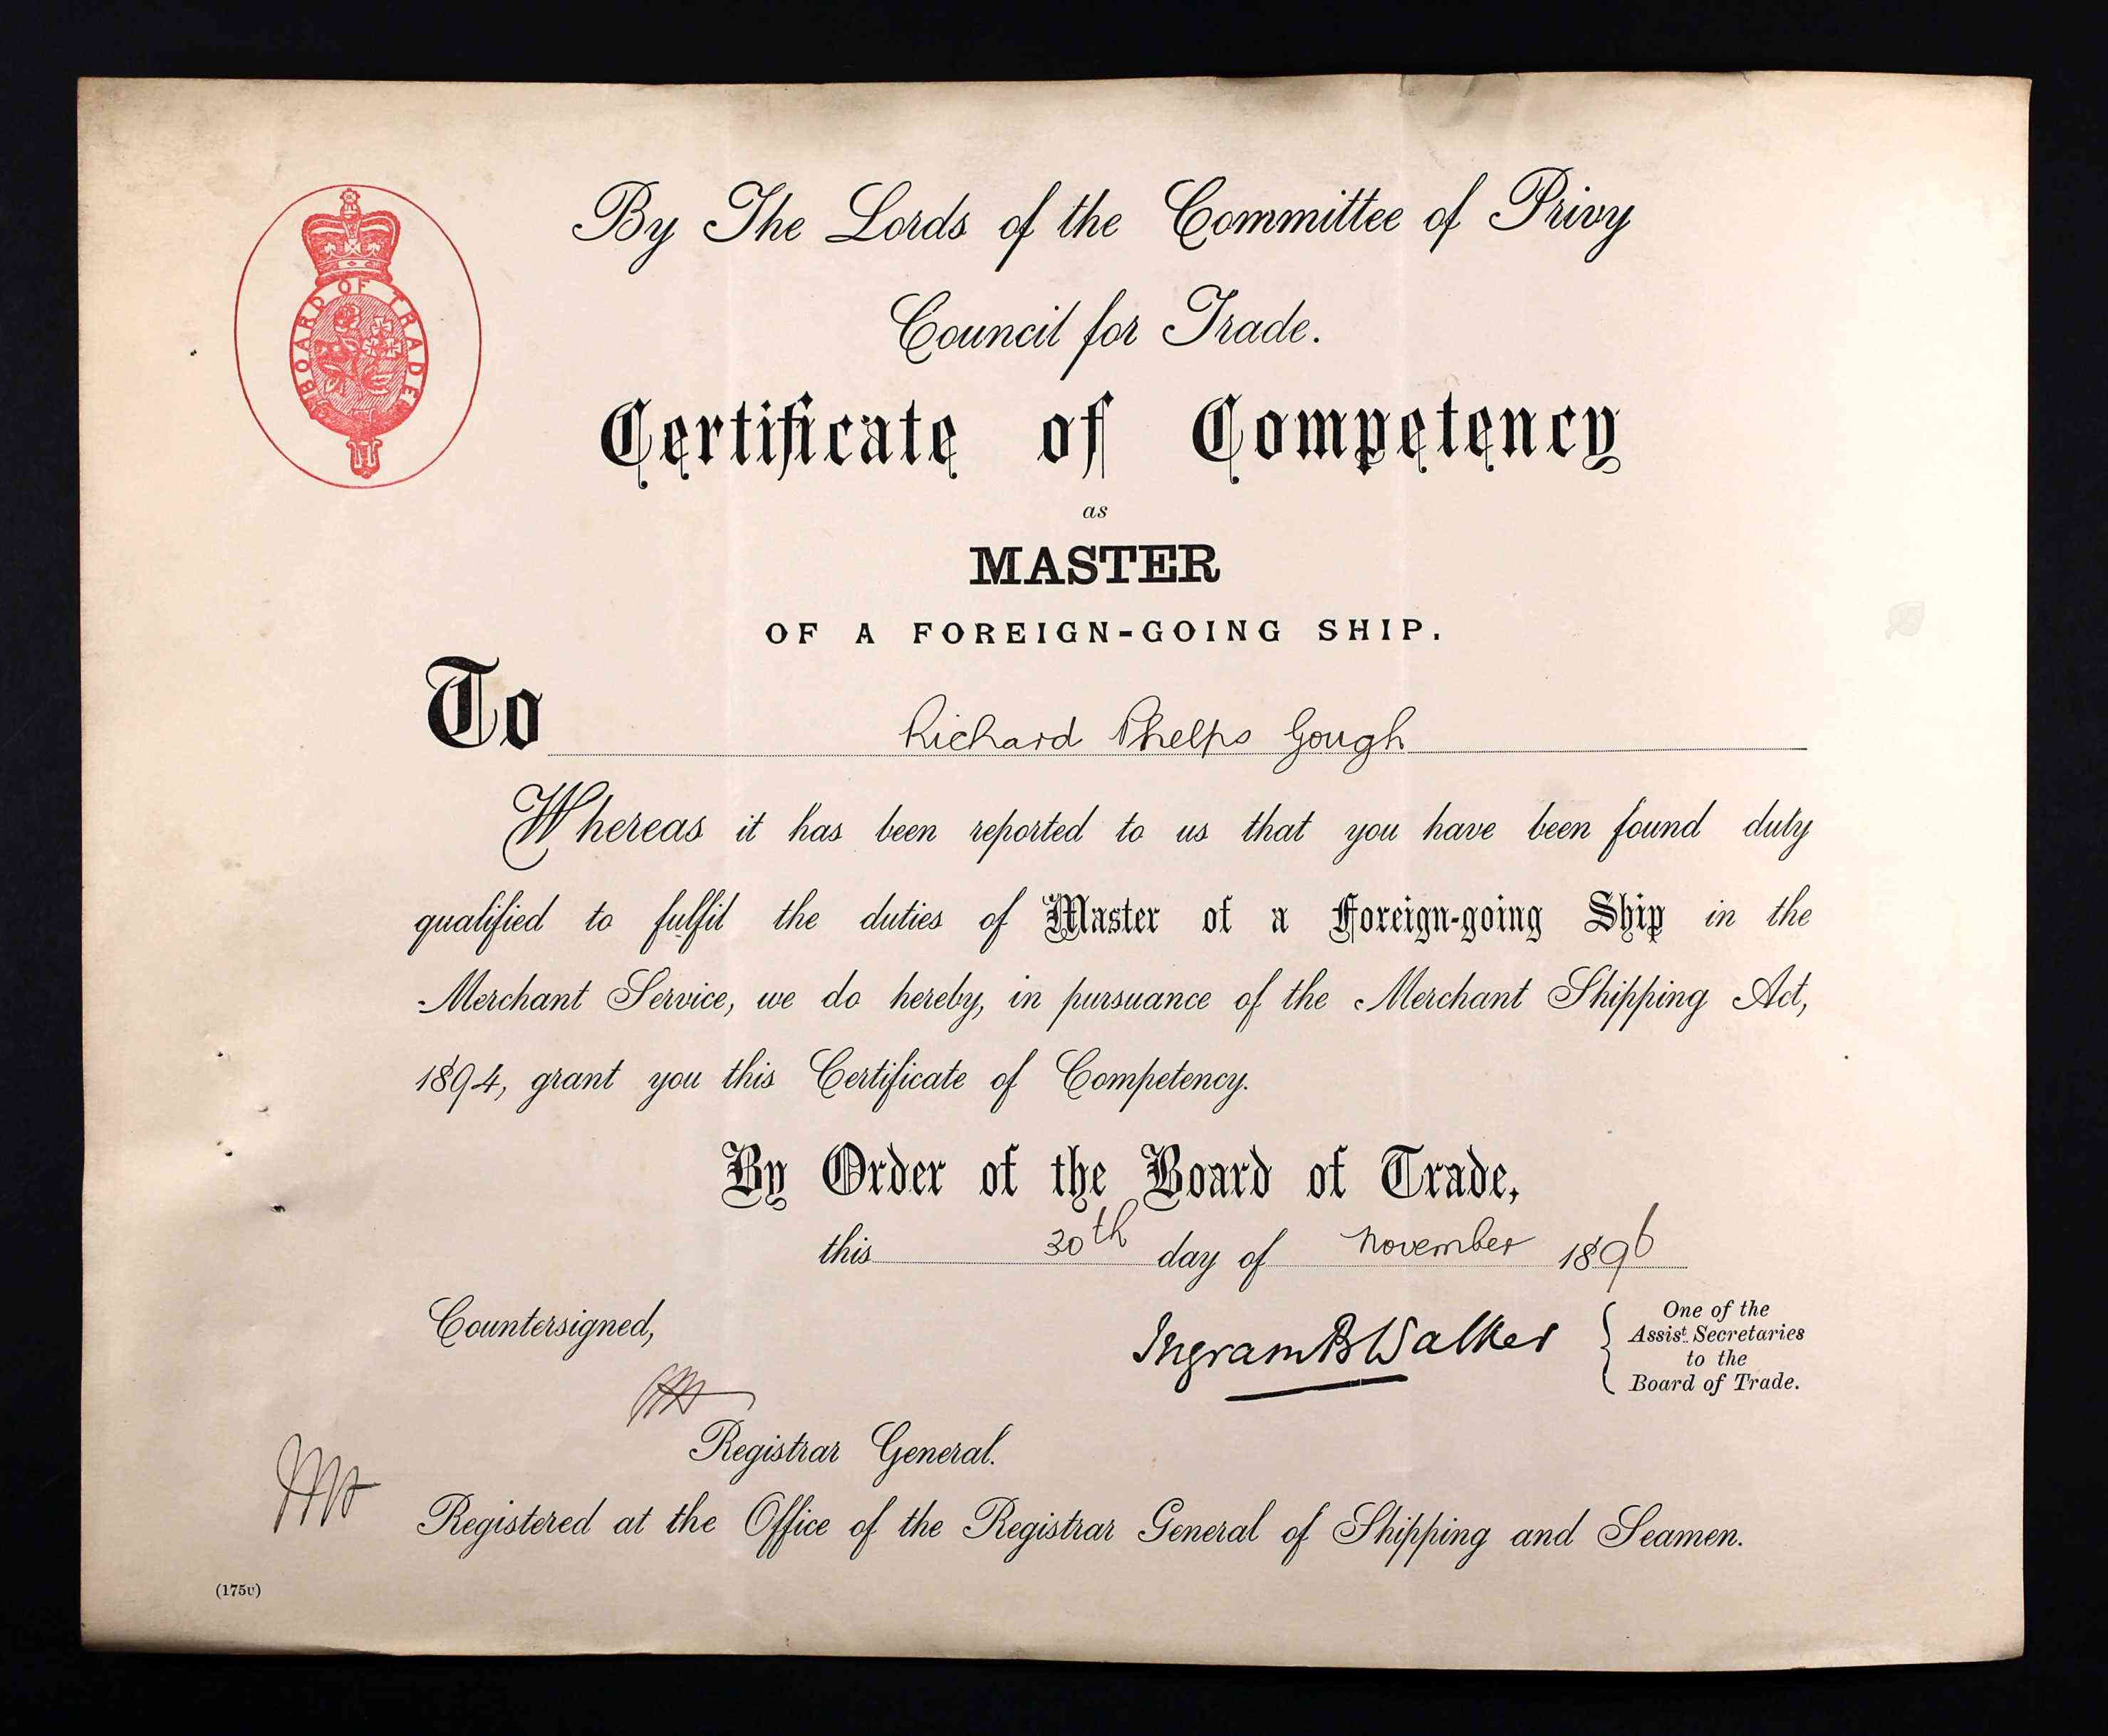 BOARD OF TRADE
By The Lords of the Committee of Privy
Council for Trade.
Certificate of Competency
as
MASTER
OF A FOREIGN-GOING SHIP.
To Richard Phelps Gough
Whereas it has been reported to us that you have been found duly
qualified to fulfil the duties of Master of a Foreign-going Ship in the
Merchant Service, we do hereby, in pursuance of the Merchant Shipping Act,
1894, grant you this Certificate of Competency.
By Order of the Board of Trade,
this 30th day of November 1896
Countersigned,
Ingram B Walker
One of the
Assist. Secretaries
to the
Board of Trade.
Registrar General.
Registered at the Office of the Registrar General of Shipping and Seamen.